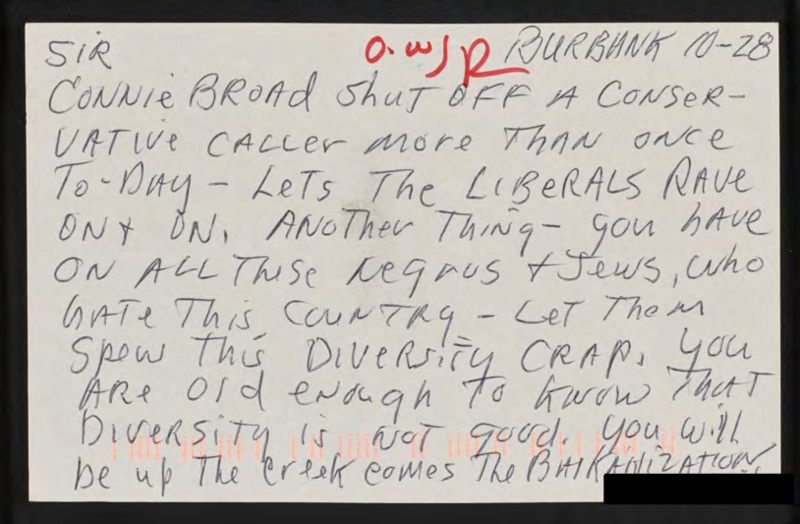 SIR O.W JR BURBANK 10-28
CONNIE BROAD SHUT OFF A CONSER-
VATIVE CALLER MORE THAN ONCE
TO-DAY - LETS THE LIBERALS RAVE
ON + ON. ANOTHER THING - YOU HAVE
ON ALL THESE NEGROS + JEWS, WHO
HATE THIS COUNTRY - LET THEM
SPEW THIS DIVERSITY CRAP. YOU
ARE OLD ENOUGH TO KNOW THAT
DIVERSITY IS NOT GOOD. YOU WILL
BE UP THE CREEK COMES THE BALKANIZATION.